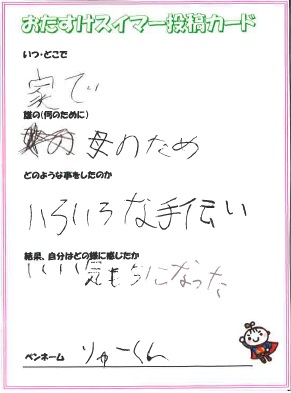 おたすけスイマー投稿カード
いつ・どこで
家で
誰の(何のために)
母のため
どのような事をしたのか
いろいろな手伝い
結果、自分はどの様に感じたか
いい気もちになった
ペンネーム りゅーくん